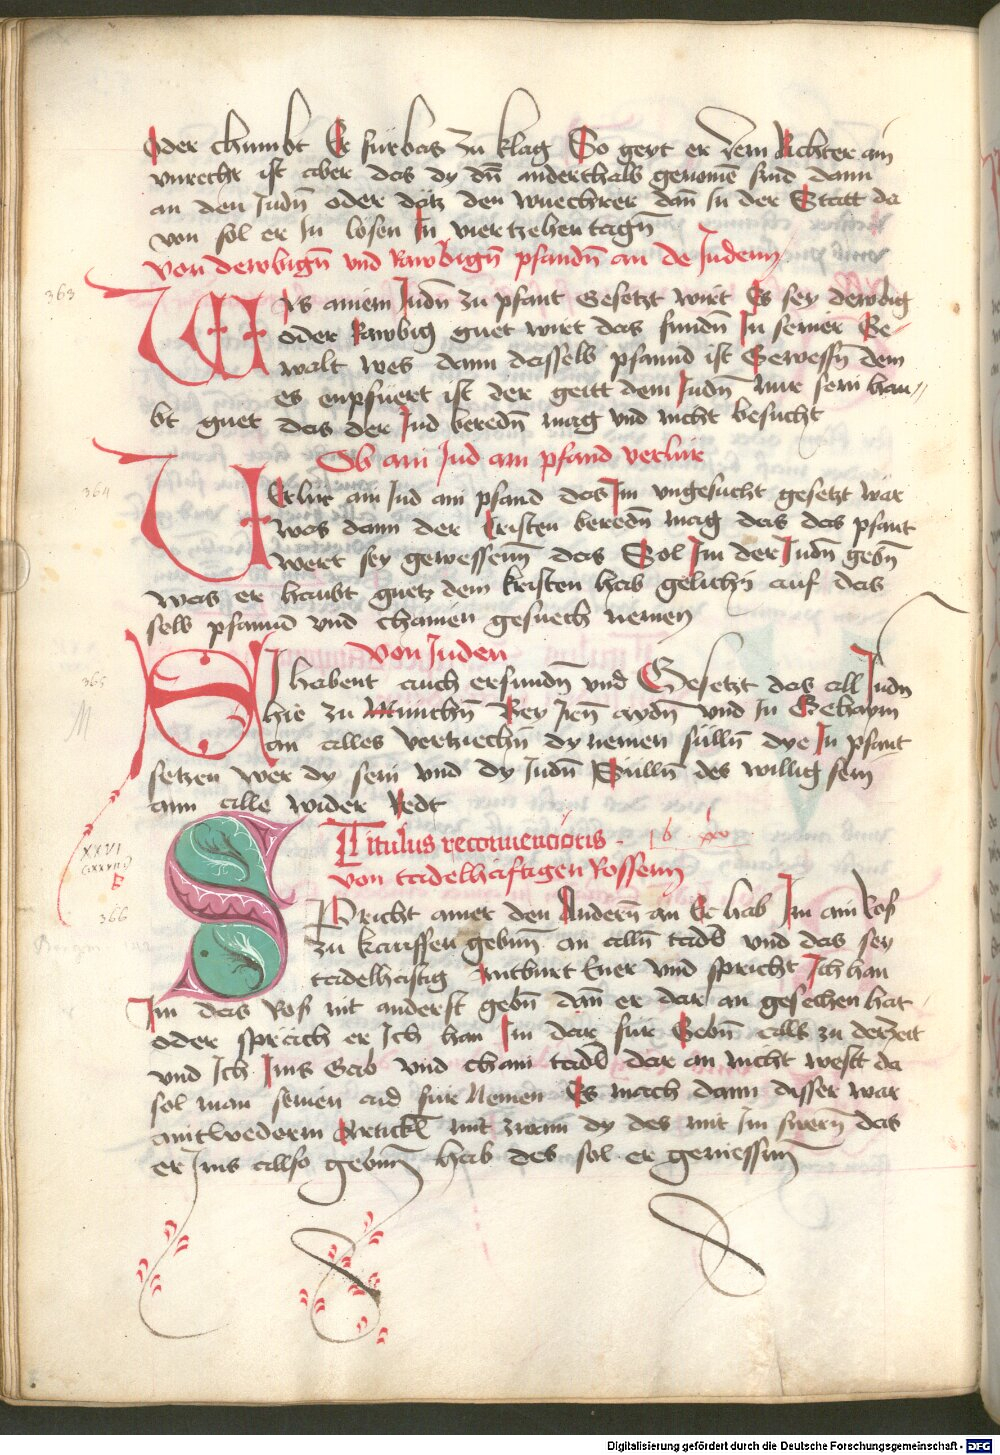 Oder chumbt Er fürbas zu klag So geyt er dem Richter ain
vnrecht ist aber das dy dñ anderthalb genomē sind dann
an den Judñ oder datz den wuechrer dañ in der Statt da
von sol er In lösen In viertzehen tagñ
Von dewbigñ vnd Rawbigñ pfandñ an de Juden
363
Was ainem Judñ zu pfant Gesetzt wirt Es sey dewbig
oder Rawbig guet wirt das fundñ In seiner Ge-
walt wes dann dasselb pfannd ist Gewessñ dem
es enpfüert ist der geitt dem Judñ nür sein hau-
bt guet das der Jud beredñ mag vnd nicht besucht
Ob ain Jud ain pfand verlür
364
Verlür ain Jud ain pfand das Im vngesucht gesetzt wär
was dann der Cristen beredñ mag das das pfant
wert sey gewessenn das Sol Im der Judñ gebñ
was er haubt guetz dem kristen hab gelichñ auf das
selb pfannd vnd chainen gesuech nemen
von Juden
365
M
Si habent auch erfundñ vnd Gesetzt das all Judñ
hie zu Münichñ Bey Iren aydñ vnd In Gehaym
an alles vertziechñ dy nemen süllñ dye In pfant
setzen wer dy sein vnd dy Judñ Süllñ des willig sein
ann alle wider Redt
Titulus reconuencionis
XXVI
von tadelhaftigen Rossenn
366
Spricht ainer den Anderñ an Er hab Im ain Ros
zu kauffen gebenn an allñ tadl vnd das sey
tadelhaftig Antburt Ener vnd spricht Ich han
Im das Ros nit anderst gebñ dañ er dar an gesechen hat
oder spräch er Ich han Im dar für Gebñ alls zu der zeit
vnd Ich Ims Gab vnd chain tadl dar an nicht west da
sol man seinen aid für Nemen Es mach dann disser war
aintwederm Artickl mit zwain dy des mit Im swerñ das
er Ims allso gebenn hab des sol er geniessenn
Digitalisierung gefördert durch die Deutsche Forschungsgemeinschaft - DFG